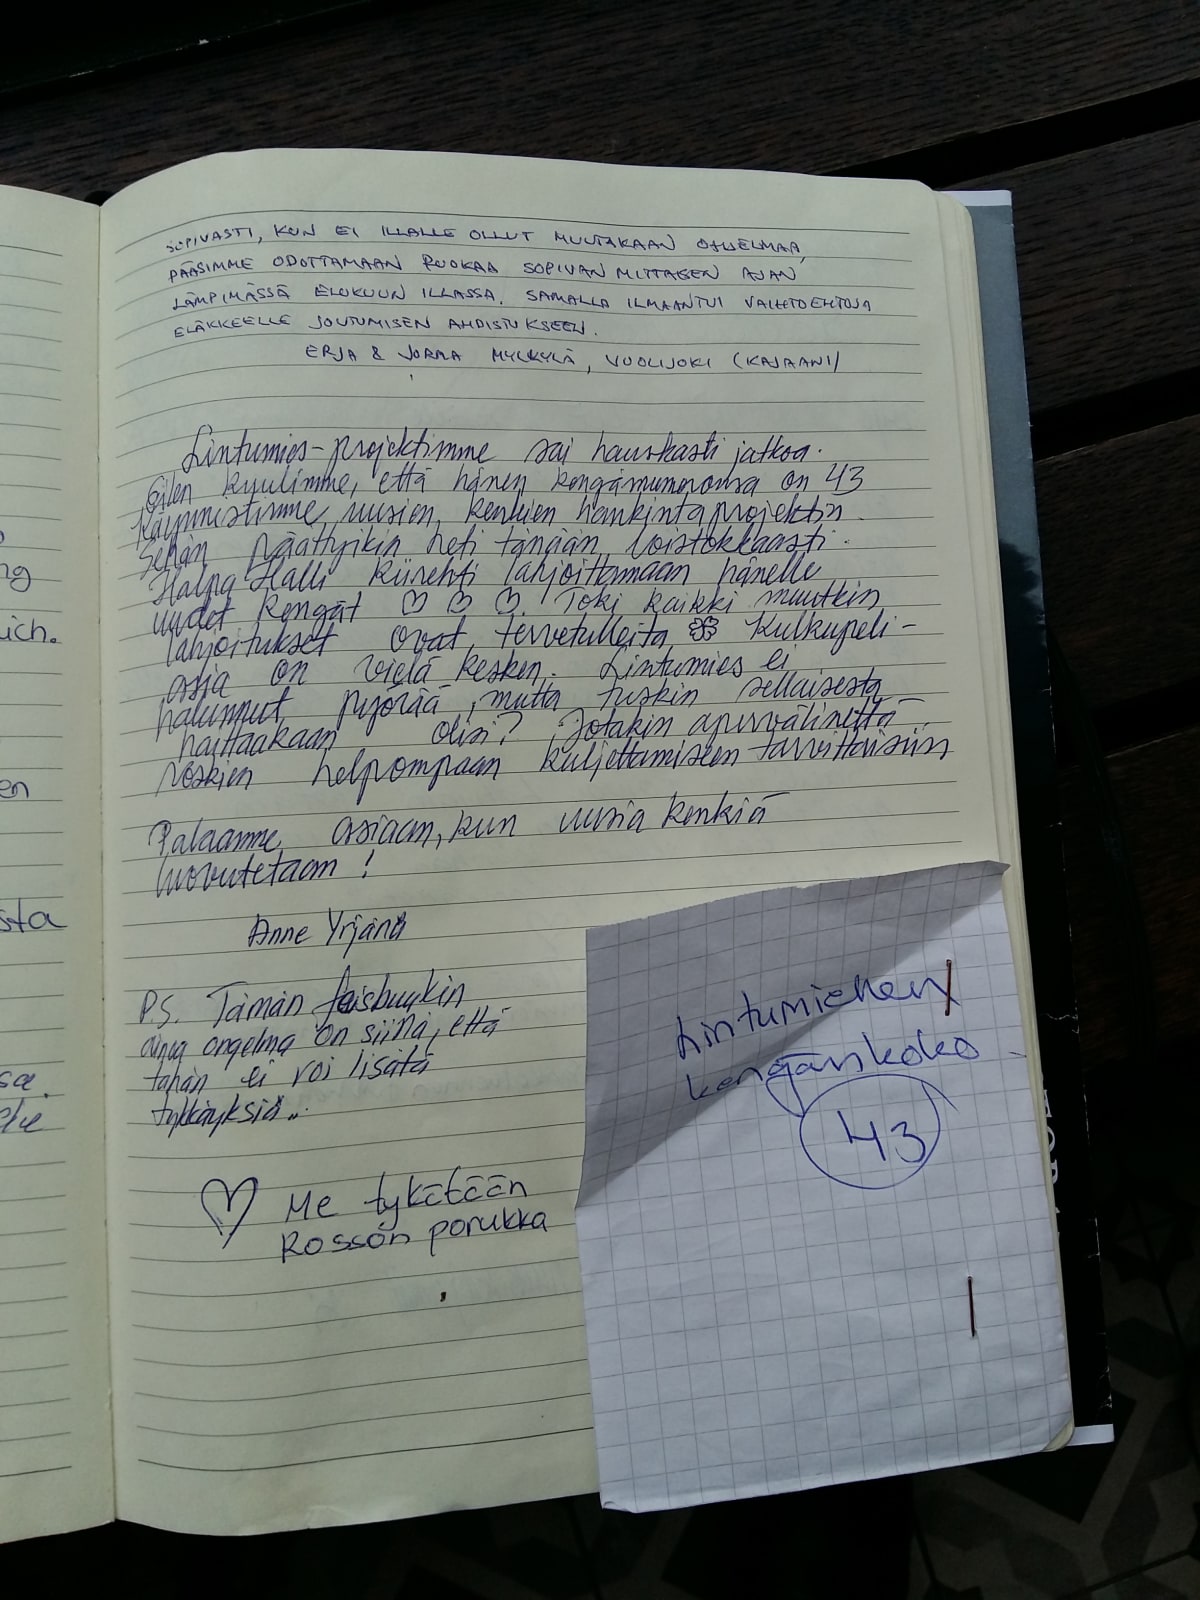 SOPIVASTI, KUN EI ILLALLE OLLUT MUUTAKAAN OHJELMAA,
PÄÄSIMME ODOTTAMAAN RUOKAA SOPIVAN MITTAISEN AJAN
LÄMPIMÄSSÄ ELOKUUN ILLASSA. SAMALLA ILMAANTUI VAIHTOEHTOJA
ELÄKKEELLE JOUTUMISEN AHDISTUKSEEN.
ERJA & JORMA MYLKYLÄ, VUOLIJOKI (KAJAANI)
Lintumies-projektimme sai hauskasti jatkoa.
Eilen kuulimme, että hänen kengännumeronsa on 43
Käynnistimme uusien kenkien hankintaprojektin.
Sehän päättyikin heti tänään loistokkaasti.
Halpa Halli kiirehti lahjoittamaan hänelle
uudet kengät ♡ ♡ ♡. Toki kaikki muutkin
lahjoitukset ovat tervetulleita Kulkupeli-
asia on vielä kesken. Lintumies ei
halunnut pyörää, mutta tuskin sellaisesta
haittaakaan olisi? Jotakin apuvälinettä
roskien helpompaan kuljettamiseen tarvittaisiin
Palaamme asiaan, kun uusia kenkiä
luovutetaan!
Anne Yrjänä
P.S. Tämän feisbuukin
ainoa ongelma on siinä, että
tähän ei voi lisätä
tykkäyksiä..
♡ Me tykätään
Rosson porukka
Lintumiehen
kengänkoko
43
ng
ich.
en
sta
sa.